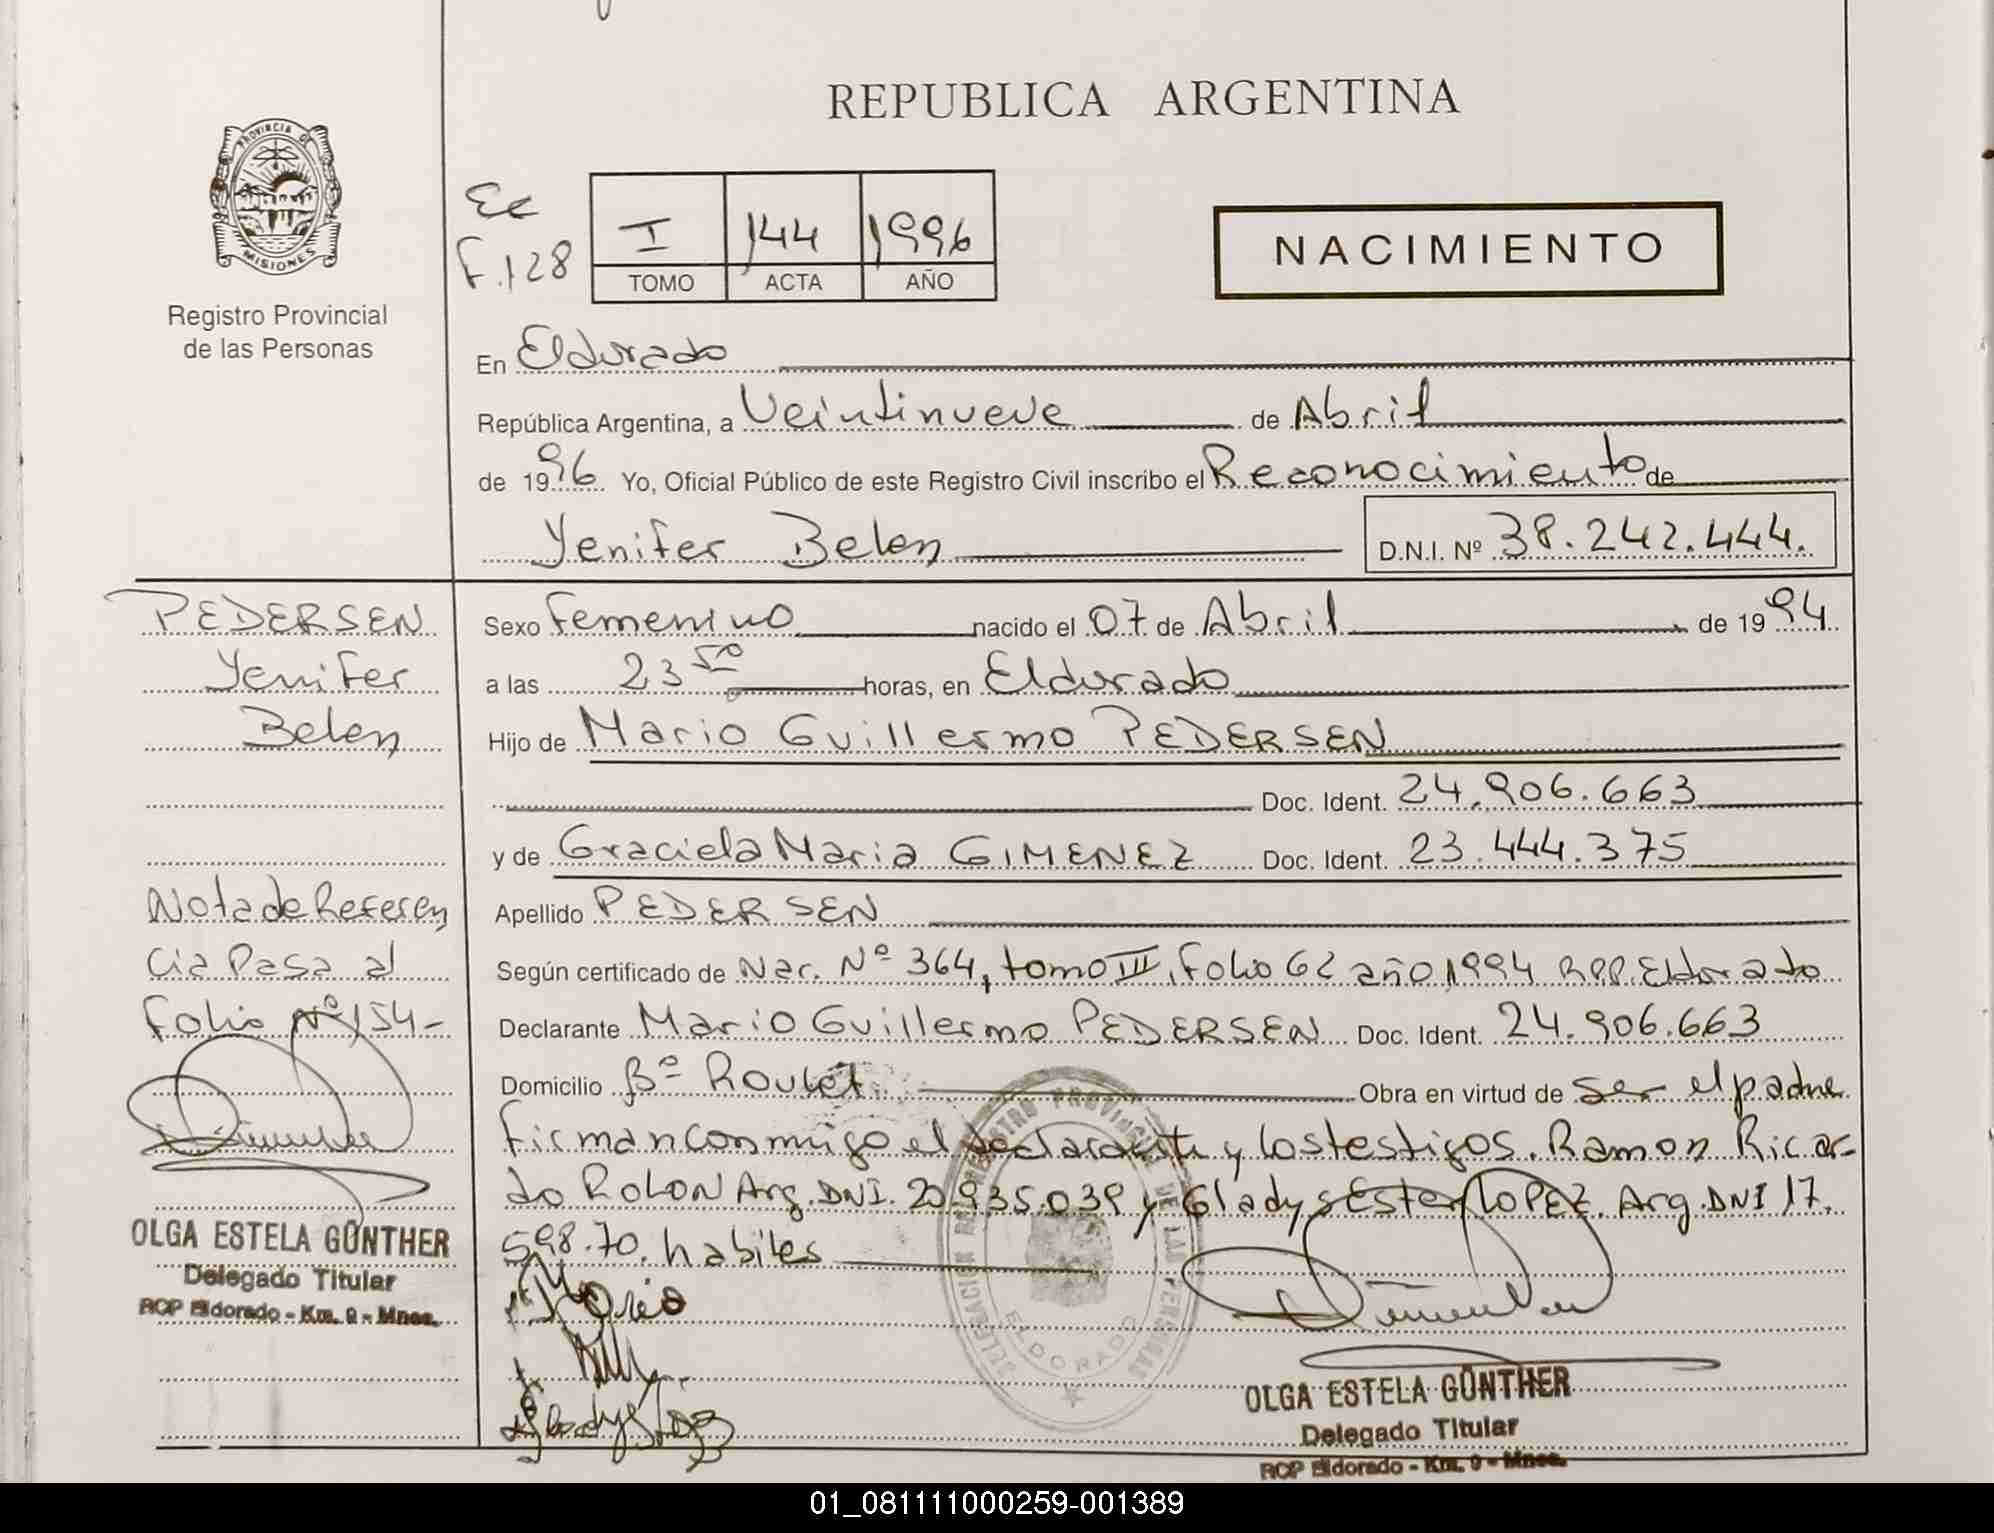 REPUBLICA ARGENTINA
PROVINCIA DE
MISIONES
Registro Provincial
de las Personas
F.128
I 144 1996
TOMO ACTA AÑO
NACIMIENTO
En Eldorado
República Argentina, a Veintinueve de Abril
de 1996 Yo, Oficial Público de este Registro Civil inscribo el Reconocimiento de
Yenifer Belen D.N.I. Nº 38.242.444.
PEDERSEN
Yenifer
Belen
Nota de Referen
cia Pasa al
Folio Nº 154-
OLGA ESTELA GÜNTHER
Delegado Titular
RCP Eldorado - Km. 9 - Mnes.
Sexo Femenino nacido el 07 de Abril de 1994
a las 23 50 horas, en Eldorado
Hijo de Mario Guillermo PEDERSEN
Doc. Ident. 24.906.663
y de Graciela Maria GIMENEZ Doc. Ident. 23.444.375
Apellido PEDERSEN
Según certificado de Nac. Nº 364, tomo III, Folio 62 año 1994 R.P.P. Eldorado
Declarante Mario Guillermo PEDERSEN Doc. Ident. 24.906.663
Domicilio Bº Roulet Obra en virtud de ser el padre
Firman conmigo el declarante y los testigos. Ramon Ricar-
do ROLON Arg. DNI. 20.935.039 y Gladys Ester LOPEZ. Arg. DNI 17.
598.70. habiles
DELEGACION REGISTRO PROVINCIAL DE LAS PERSONAS
ELDORADO
Mario
Gladys
OLGA ESTELA GÜNTHER
Delegado Titular
RCP Eldorado - Km. 9 - Mnes.
01_081111000259-001389